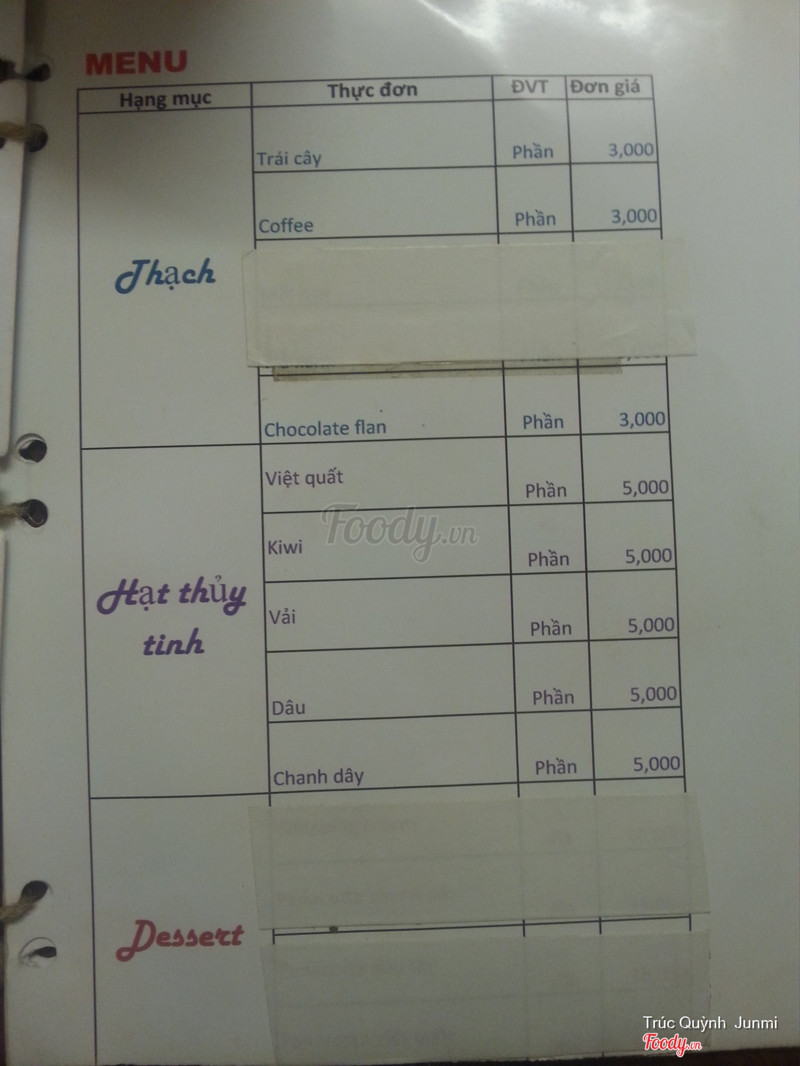 MENU
Hạng mục Thực đơn ĐVT Đơn giá
Thạch
Trái cây Phần 3,000
Coffee Phần 3,000
Chocolate flan Phần 3,000
Hạt thủy tinh
Việt quất Phần 5,000
Kiwi Phần 5,000
Vải Phần 5,000
Dâu Phần 5,000
Chanh dây Phần 5,000
Dessert
Foody.vn
Trúc Quỳnh Junmi
Foody.vn